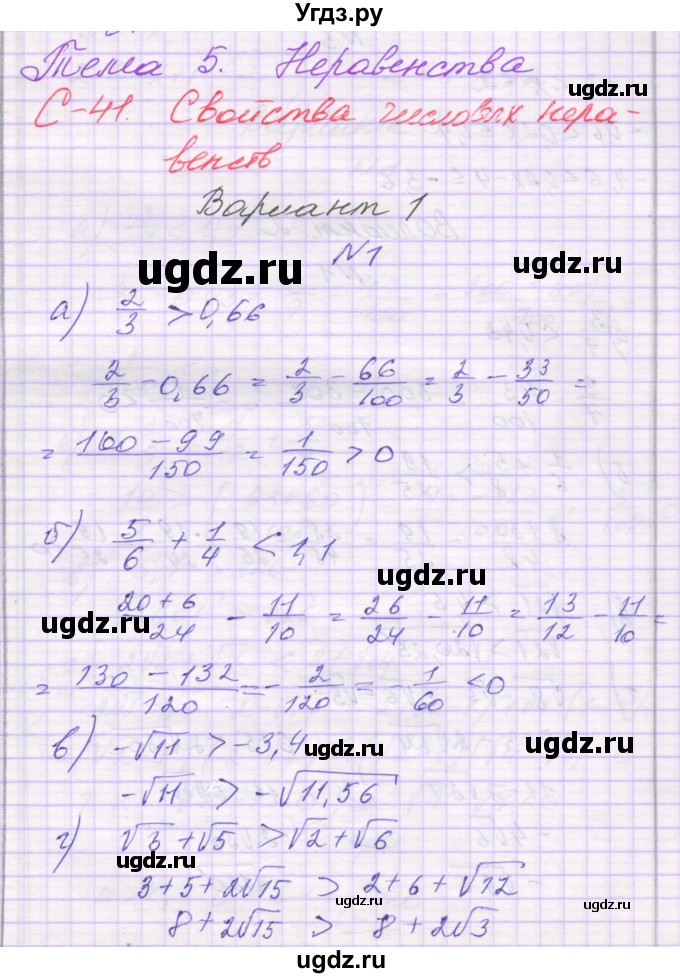 Угдз.ру
Тема 5. Неравенства
ugdz.ru
С-41. Свойства числовых нера-
ugdz.ru
венств
Вариант 1
ugdz.ru
ugdz.ru
№1
а) 2/3 > 0,66
2/3 - 0,66 = 2/3 - 66/100 = 2/3 - 33/50 =
= (100 - 99)/150 = 1/150 > 0
ugdz.ru
б) 5/6 + 1/4 < 1,1
ugdz.ru
ugdz.ru
(20 + 6)/24 - 11/10 = 26/24 - 11/10 = 13/12 - 11/10 =
= (130 - 132)/120 = -2/120 = -1/60 < 0
ugdz.ru
в) -√11 > -3,4
ugdz.ru
-√11 > -√11,56
г) √3 + √5 > √2 + √6
ugdz.ru
3 + 5 + 2√15 > 2 + 6 + √12
ugdz.ru
ugdz.ru
8 + 2√15 > 8 + 2√3
ugdz.ru
ugdz.ru